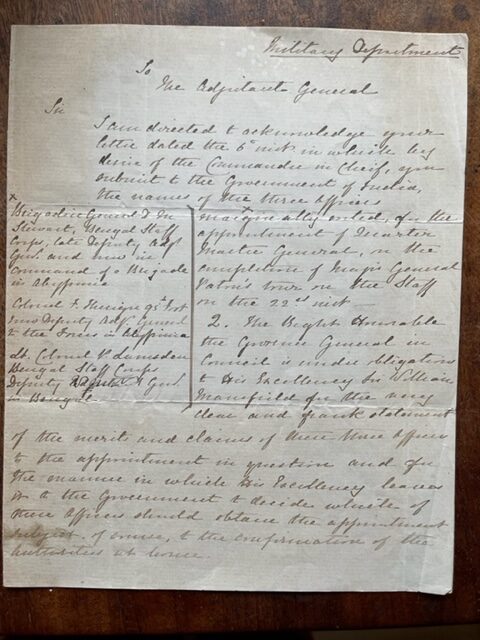 Military Department
To
The Adjutant General
Sir
I am directed to acknowledge your
letter dated the 6th inst in which by
desire of the Commander in Chief, you
submit to the Government of India,
the names of the three officers
x
marginally noted, for the
appointment of Quarter
Master General, on the
completion of Major General
Paton's tour on the Staff
on the 22nd inst
Brigadier General D M
Stewart, Bengal Staff
Corps, late Deputy Adjt
Genl and now in
Command of a Brigade
in Abyssinia
Colonel F. Thesiger 95th Foot
now Deputy Adjt General
to the Force in Abyssinia
Lt. Colonel P. Lumsden
Bengal Staff Corps
Deputy Genl
in Bengal
2. The Right Honorable
the Governor General in
Council is under obligations
to His Excellency Sir William
Mansfield for the very
clear and frank statement
of the merits and claims of these three officers
to the appointment in question and for
the manner in which His Excellency leaves
it to the Government to decide which of
these officers should obtain the appointment
subject of course, to the confirmation of the
authorities at home.